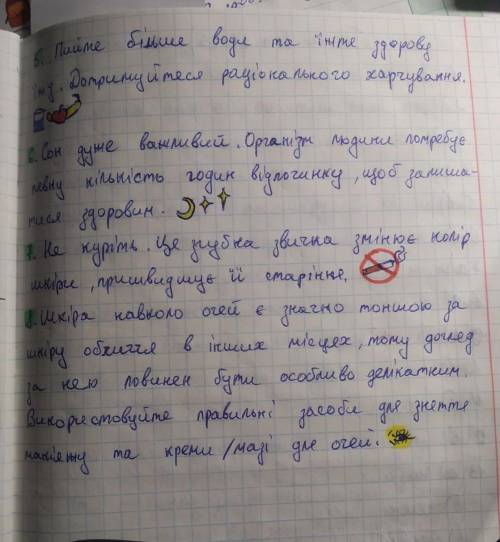 5. Пийте більше води та їжте здорову
їжу. Дотримуйтеся раціонального харчування.
6. Сон дуже важливий. Організм людини потребує
певну кількість годин відпочинку, щоб залиша-
тися здоровим.
7. Не куріть. Це згубна звичка змінює колір
шкіри, пришвидшує її старіння.
8. Шкіра навколо очей є значно тоншою за
шкіру обличчя в інших місцях, тому догляд
за нею повинен бути особливо делікатним.
Використовуйте правильні засоби для зняття
макіяжу та креми/мазі для очей.